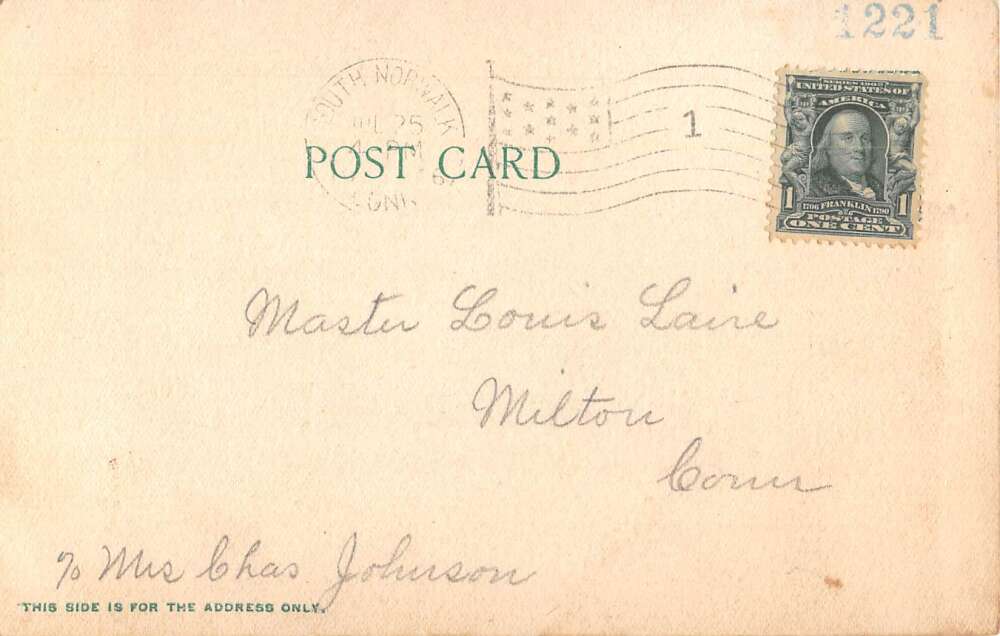 1221
SOUTH NORWALK
JUL 25
CONN.
1
POST CARD
SERIES 1902
UNITED STATES OF
AMERICA
1706 FRANKLIN 1790
1 1
POSTAGE
ONE CENT
Master Louis Laire
Milton
Conn
c/o Mrs Chas Johnson
THIS SIDE IS FOR THE ADDRESS ONLY.